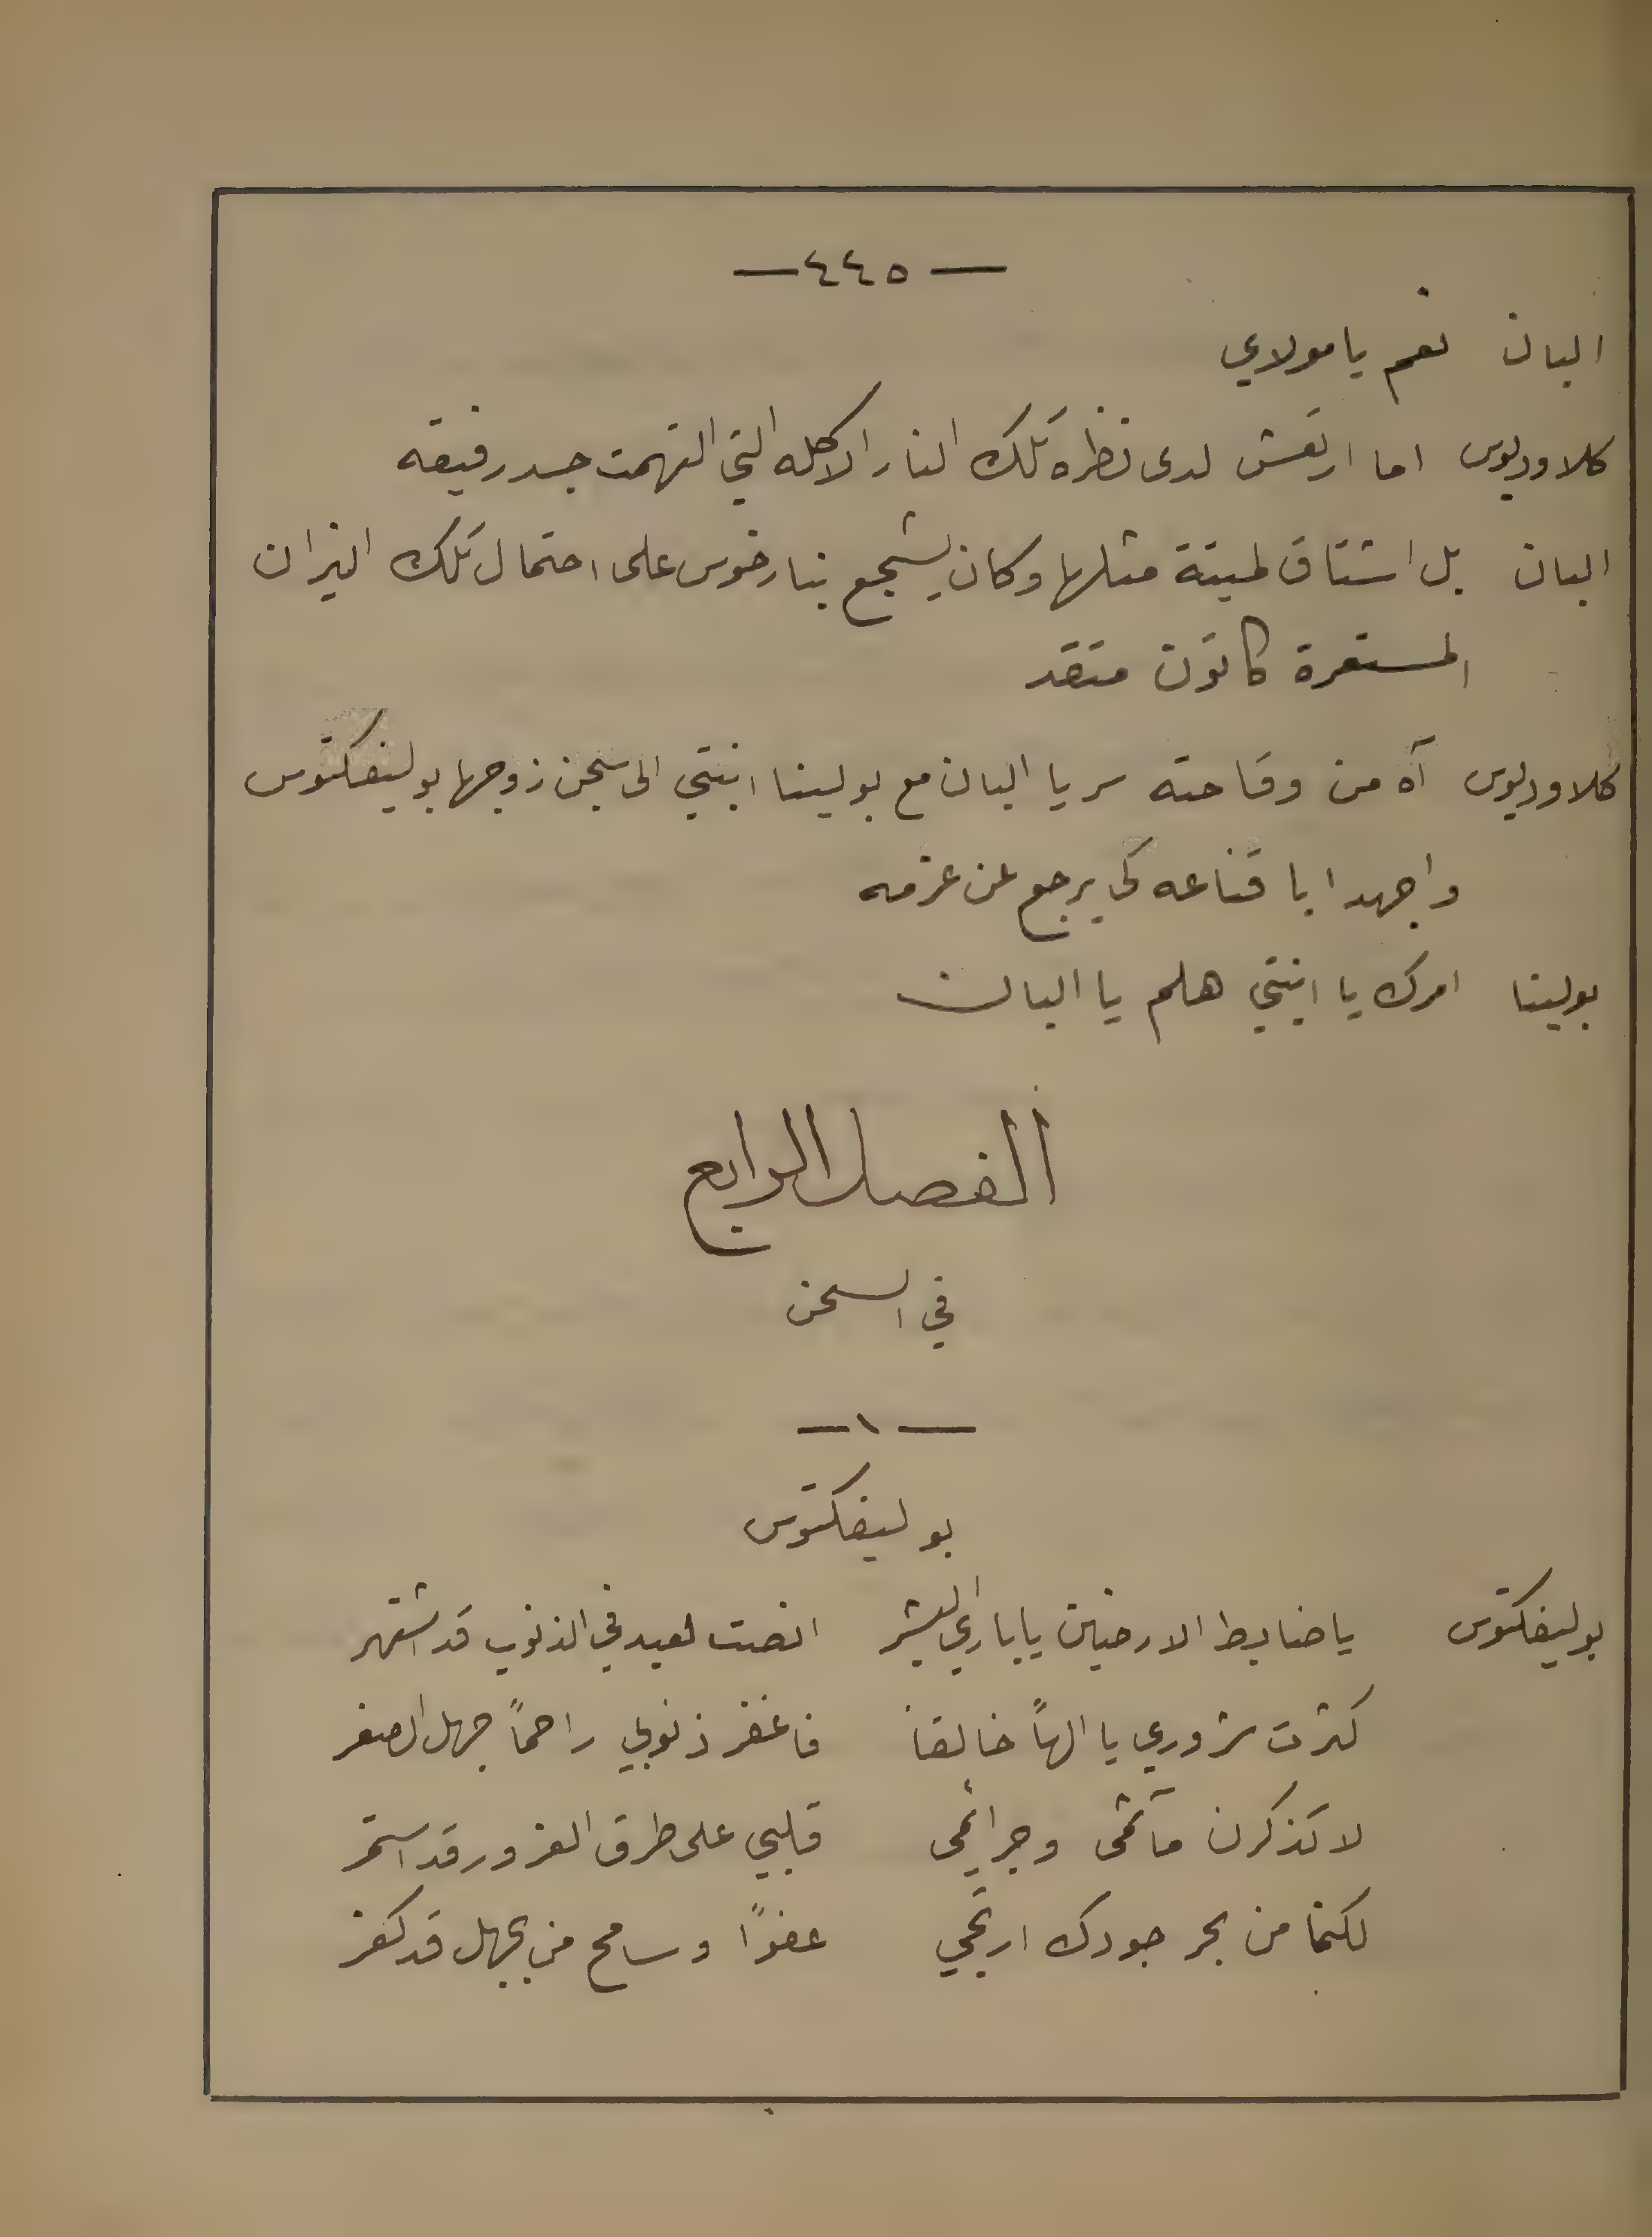 — ٤٤٥ —
البان نعم يا مولاي
كلاوديوس اما ارتعش لدى نظره تلك النار الاكله التي التهمت جسد رفيقه
البان بل اشتاق لميتة مثلها وكان يشجع بنارخوس على احتمال تلك النيران
المستعرة كاتون متقد
كلاوديوس آه من وقاحته سر يا البان مع بولينا ابنتي الى سجن زوجها بوليفكتوس
واجهدا باقناعه كي يرجع عن عزمه
بولينا امرك يا ابتي هلم يا البان
الفصل الرابع
في السجن
— ١ —
بوليفكتوس
بوليفكتوس يا ضابط الارضين يا باري البشر انصت لعبد في الذنوب قد اشتهر
كثرت شروري يا الهاً خالقا فاغفر ذنوبي راحماً جهل الصغر
لا تذكرن مآثمى وجرائمى قلبي على طرق الغرور قد استمر
لكنما من بحر جودك ارتجي عفوًا وسامح من بجهل قد كفر